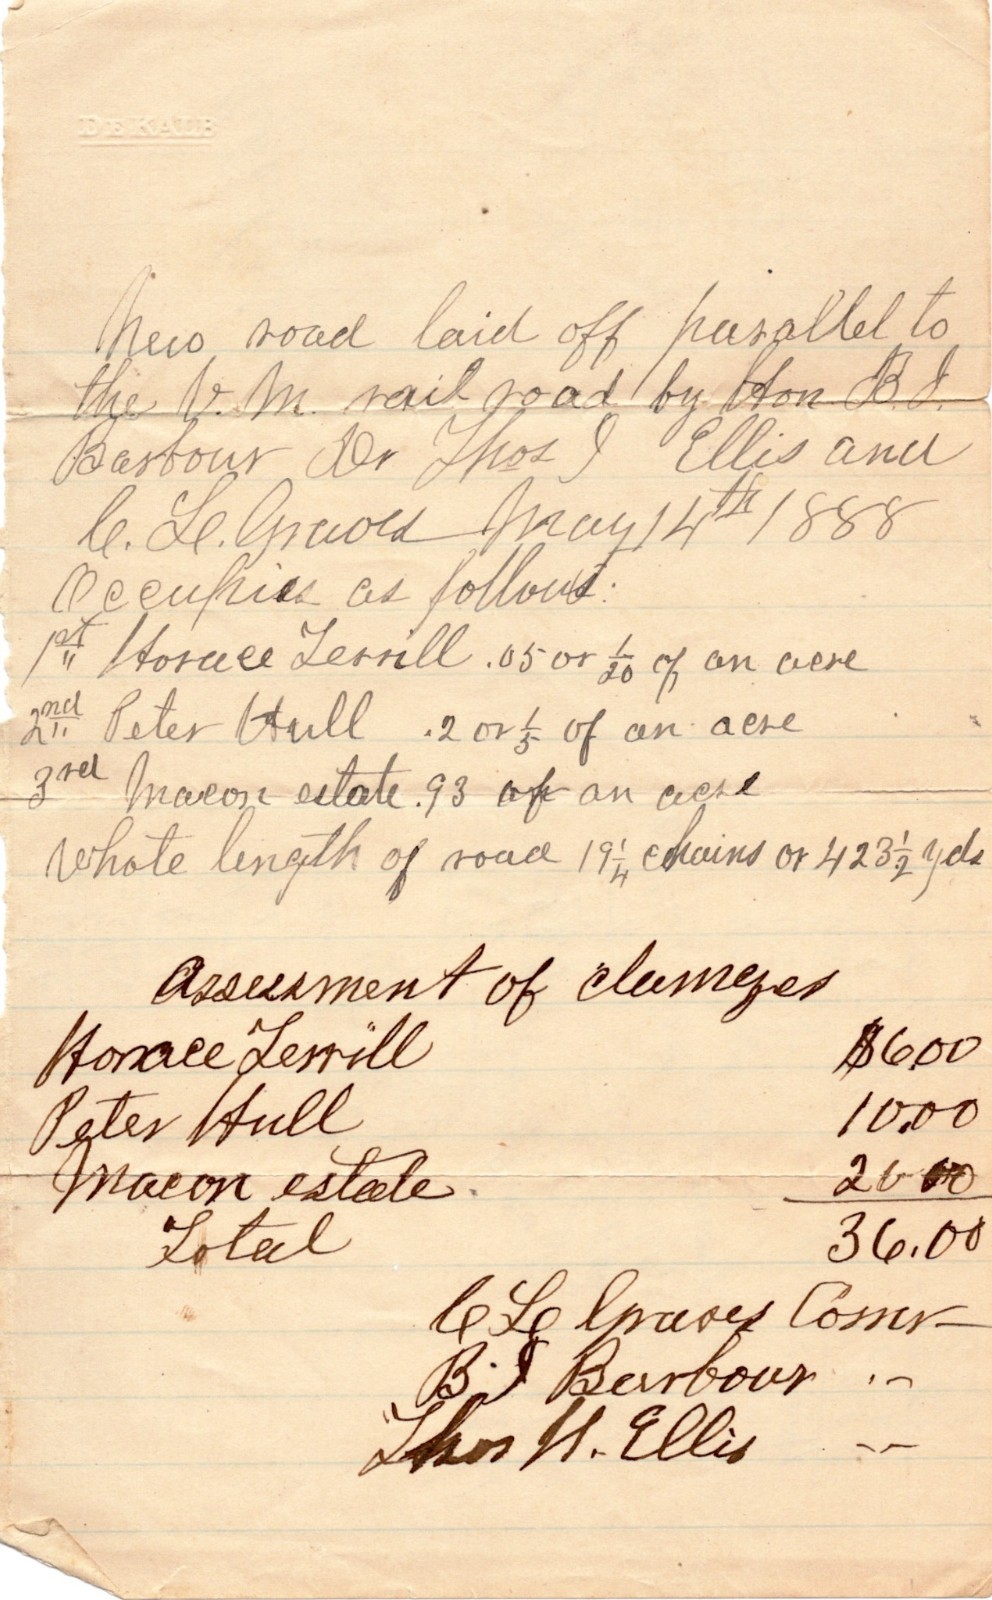 DE KALB
New road laid off parallel to
the V. M. rail road by Hon B. J.
Barbour Dr Thos J Ellis and
C. L. Graves May 14th 1888
Occupies as follows:
1st Horace Terrill .05 or 1/20 of an acre
2nd Peter Hull .2 or 1/5 of an acre
3rd Macon estate .93 of an acre
Whole length of road 19 1/4 chains or 423 1/2 yds
Assessment of damages
Horace Terrill $6.00
Peter Hull 10.00
Macon estate 20 00
Total 36.00
C L Graves Comr
B. J Barbour "
Thos H. Ellis "